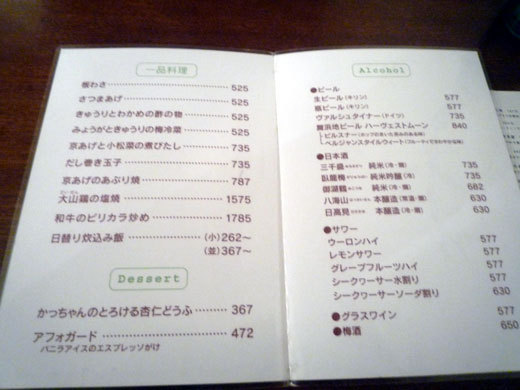 一品料理
板わさ 525
さつまあげ 525
きゅうりとわかめの酢の物 525
みょうがときゅうりの梅冷菜 525
京あげと小松菜の煮びたし 735
だし巻き玉子 735
京あげのあぶり焼 787
大山鶏の塩焼 1575
和牛のピリカラ炒め 1785
日替り炊込み飯 (小)262〜
(並)367〜
Dessert
かっちゃんのとろける杏仁どうふ 367
アフォガード 472
バニラアイスのエスプレッソがけ
Alcohol
●ビール
生ビール(キリン) 577
瓶ビール(キリン) 577
ヴァルシュタイナー(ドイツ) 735
舞浜地ビール ハーヴェストムーン 840
ピルスナー
ベルジャンスタイルウィート
●日本酒
三千盛 純米(冷・燗) 735
臥龍梅 純米吟醸(冷) 735
御湖鶴 純米(冷・燗) 682
八海山 本醸造(常温・燗) 630
日高見 本醸造(冷・燗) 630
●サワー
ウーロンハイ 577
レモンサワー 577
グレープフルーツハイ 577
シークヮーサー水割り 577
シークヮーサーソーダ割り 630
●グラスワイン 577
●梅酒 650